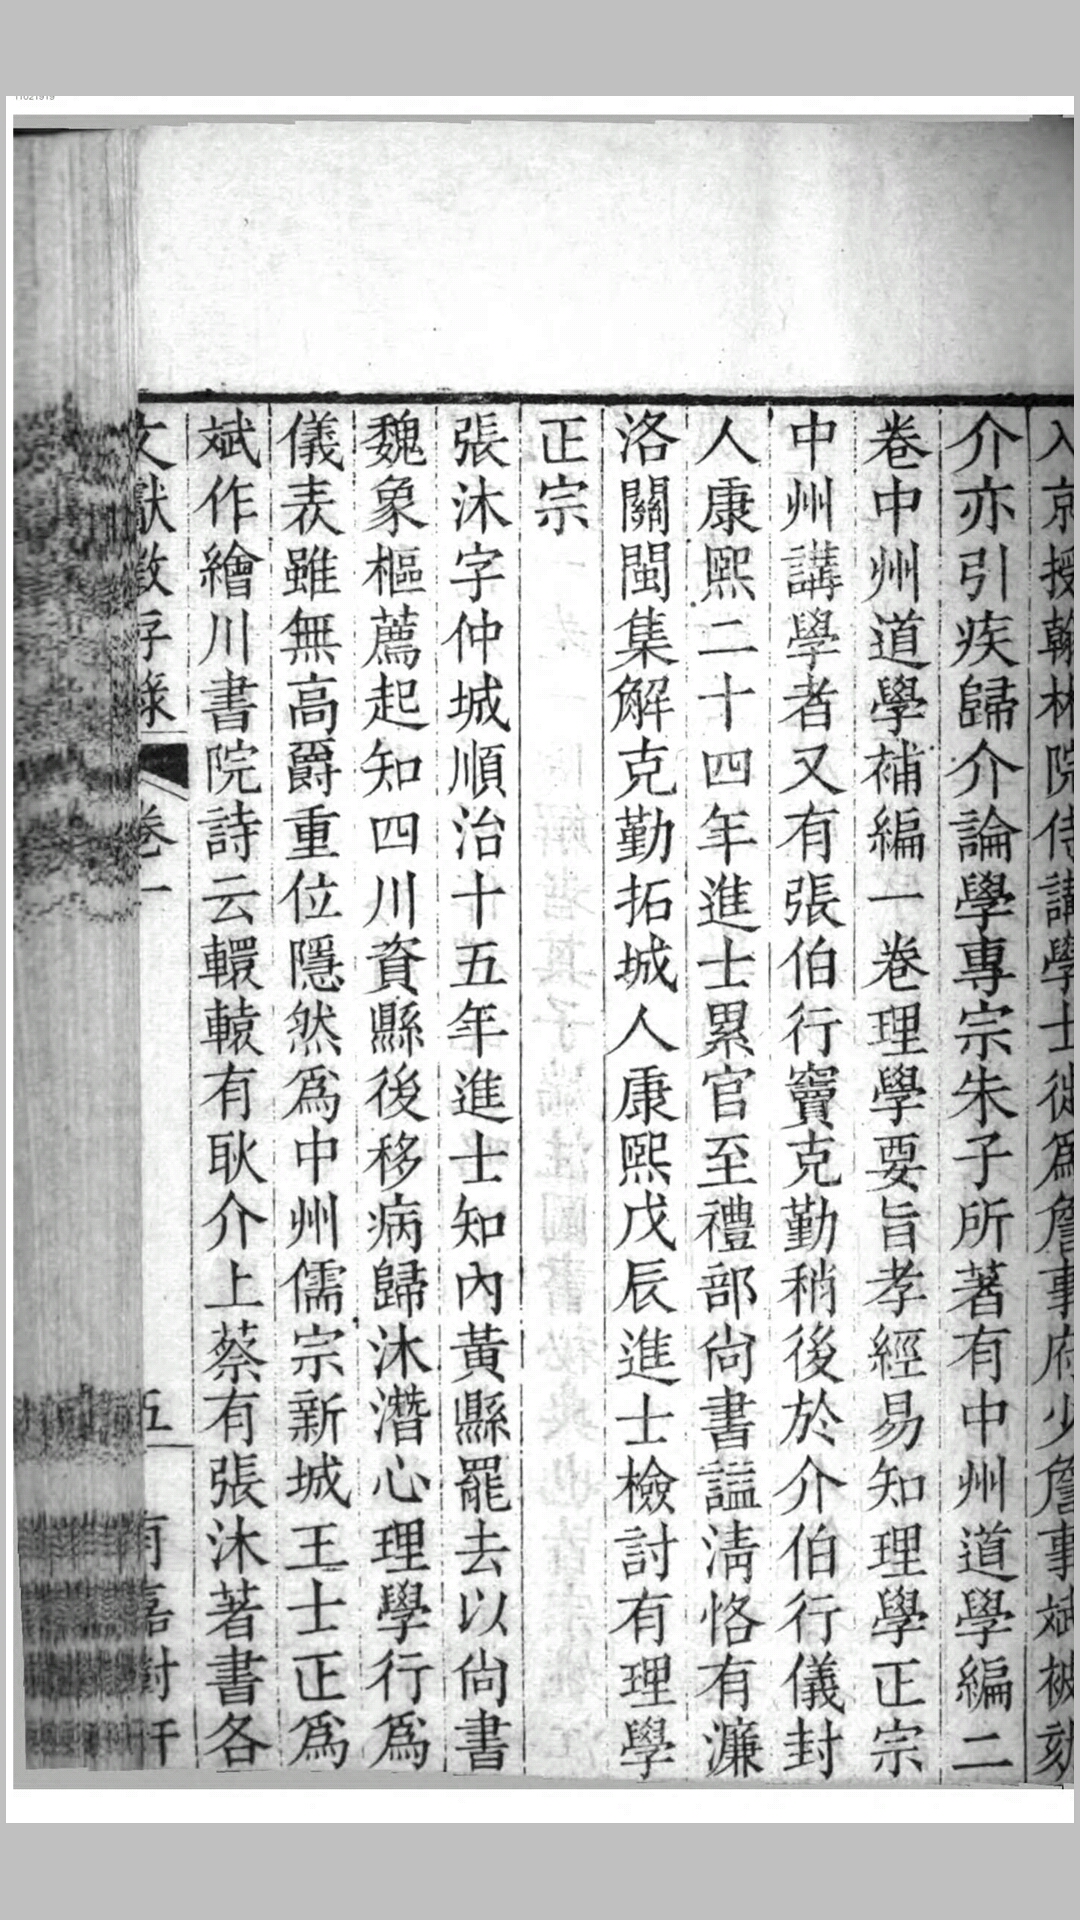 入京授翰林院侍講學士從爲詹事府少詹事斌被劾
介亦引疾歸介論學專宗朱子所著有中州道學編二
卷中州道學補編一卷理學要旨孝經易知理學正宗
中州講學者又有張伯行竇克勤稍後於介伯行儀封
人康熙二十四年進士累官至禮部尙書謚淸恪有濂
洛關閩集解克勤拓城人康熙戊辰進士檢討有理學
正宗
張沐字仲城順治十五年進士知內黃縣罷去以尙書
魏象樞薦起知四川資縣後移病歸沐潛心理學行爲
儀表雖無高爵重位隱然爲中州儒宗新城王士正爲
斌作繪川書院詩云轘轅有耿介上蔡有張沐著書各
文獻徵存錄 卷一 五 有嘉樹軒